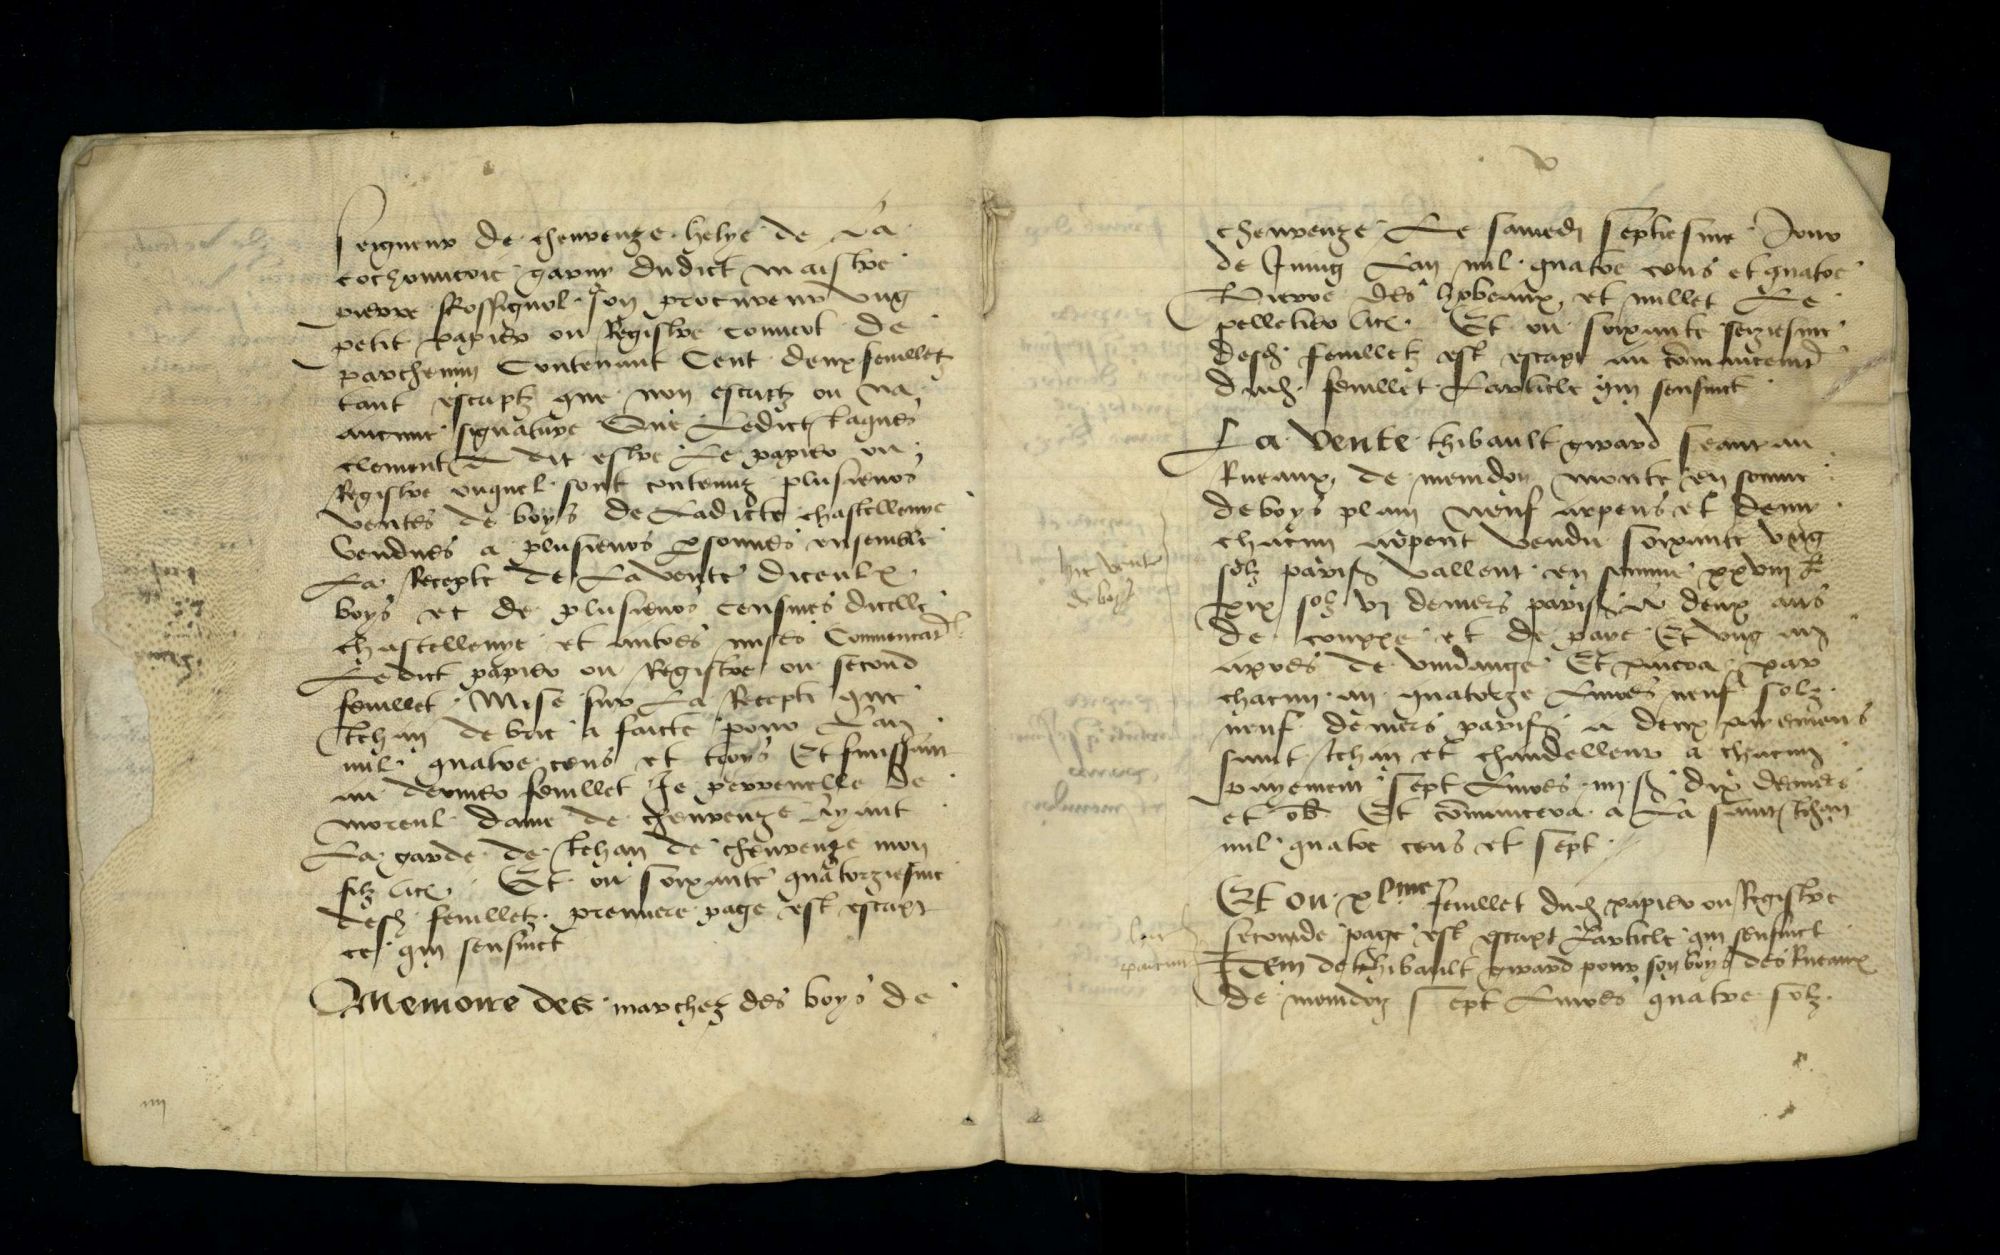 seigneur de chevreuze helye de La
cochonniere garny dudict maistre
pierre Rossignol son procureur Ung
petit papier ou Registre couvert de
parchemin Contenant Cent deux feuilletz
tant escriptz que non escriptz ou na
aucune signature Que Ledict Jaques
clement a dit estre Le papier ou
Registre ouquel sont contenuz plusieurs
ventes de boys de Ladicte chastellenye
Vendues a plusieurs personnes ensemble
La Recepte de La vente diceulx
boys et de plusieurs censives dicelle
chastellenye et autres mises Commencant
Ledict papier ou Registre ou second
feuillet Mise sur La Recepte que
Jehan de brie a faicte pour Lan
mil quatre cens et troys Et finissant
au dernier feuillet Je perrenelle de
moreul dame de chevreuze Ayant
La garde de Jehan de chevreuze mon
filz etc. Et ou soixante quatorziesme
desd feuilletz premiere page est escript
ce qui sensuict
Memoire des marchez des boys de
iiii
v
chevreuze Le samedi septiesme Jour
de Juing Lan mil quatre cens et quatre
Pierre des hobeaux et millet Le
pelletier etc. Et ou soixante seziesme
desd feuilletz est escript au commancement
dud feuillet Larticle qui sensuict
La Vente thibault girard seant au
Rueaux de meudon monte en somme
de boys plain neuf arpens et demy
chacun arpent vendu soixante Ung
solz parisis vallent en somme xxviii L
xix solz vi deniers parisis A deux ans
de couppe et de paye Et Ung an
apres de vuidange Et paiera par
chacun an quatorze Livres neuf solz
neuf deniers parisis a deux paiemens
saint Jehan et chandelleur a chacun
payement sept Livres iiii s dix deniers
et ob Et commencera a La saint Jehan
mil quatre cens et sept
hic vente
de boys
Et ou xl.me feuillet dud papier ou Registre
seconde page est escript Larticle qui sensuict
Item de thibault girard pour son boys des Rueaux
de meudon sept Livres quatre solz